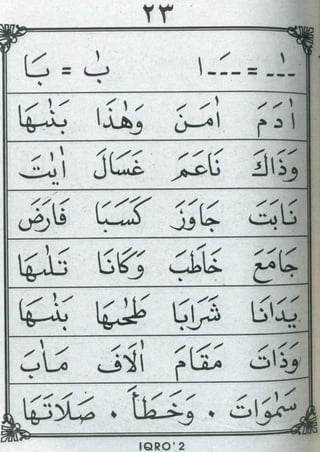 ٢٣
ـٰـ = ـَـ ا   بٰ = بَا
اٰدَمَ اٰمَنَ وَهٰذَا بَنٰىهَا
وَذَاكَ نَاعَمَ غَسَالَ اٰيٰتَ
نَابَتَ جَاوَزَ كَسَبَا فَارَضَ
جَامَعَ خَاطَبَ وَكَانَا تَلٰىهَا
يَدَانَا شَرَابَا طَحٰىهَا بَنٰىهَا
وَذَاتَ مَقَامَ اٰلَافَ مَاٰبَ
سَمٰوَاتَ . وَخَطَأَ . صَلَاتَهَا
IQRO' 2